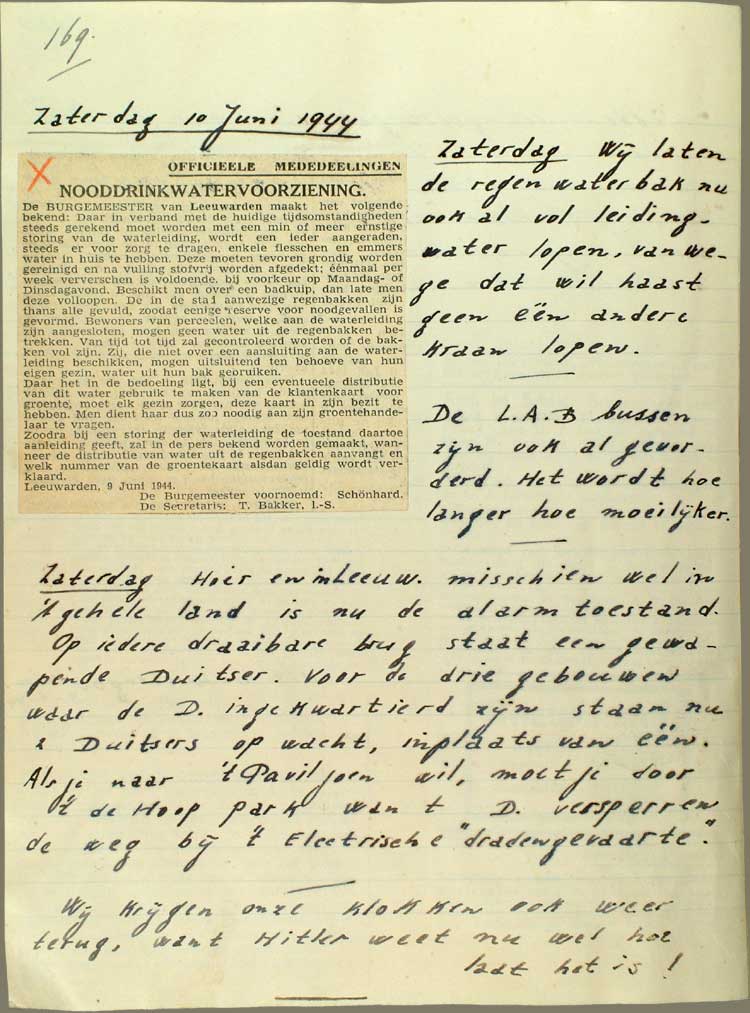 169.
Zaterdag 10 Juni 1944
X
OFFICIEELE MEDEDEELINGEN
NOODDRINKWATERVOORZIENING.
De BURGEMEESTER van Leeuwarden maakt het volgende
bekend: Daar in verband met de huidige tijdsomstandigheden
steeds gerekend moet worden met een min of meer ernstige
storing van de waterleiding, wordt een ieder aangeraden,
steeds er voor zorg te dragen, enkele flesschen en emmers
water in huis te hebben. Deze moeten tevoren grondig worden
gereinigd en na vulling stofvrij worden afgedekt; éénmaal per
week ververschen is voldoende, bij voorkeur op Maandag- of
Dinsdagavond. Beschikt men over een badkuip, dan late men
deze volloopen. De in de stad aanwezige regenbakken zijn
thans alle gevuld, zoodat eenige reserve voor noodgevallen is
gevormd. Bewoners van perceelen, welke aan de waterleiding
zijn aangesloten, mogen geen water uit de regenbakken be-
trekken. Van tijd tot tijd zal gecontroleerd worden of de bak-
ken vol zijn. Zij, die niet over een aansluiting aan de water-
leiding beschikken, mogen uitsluitend ten behoeve van hun
eigen gezin, water uit hun bak gebruiken.
Daar het in de bedoeling ligt, bij een eventueele distributie
van dit water gebruik te maken van de klantenkaart voor
groente, moet elk gezin zorgen, deze kaart in zijn bezit te
hebben. Men dient haar dus zoo noodig aan zijn groentehande-
laar te vragen.
Zoodra bij een storing der waterleiding de toestand daartoe
aanleiding geeft, zal in de pers bekend worden gemaakt, wan-
neer de distributie van water uit de regenbakken aanvangt en
welk nummer van de groentekaart alsdan geldig wordt ver-
klaard.
Leeuwarden, 9 Juni 1944.
De Burgemeester voornoemd: Schönhard.
De Secretaris: T. Bakker, l.-S.
Zaterdag Wij laten
de regenwaterbak nu
ook al vol leiding-
water lopen, vanwe-
ge dat wil haast
geen één andere
kraan lopen.
De L.A.B bussen
zijn ook al gevor-
derd. Het wordt hoe
langer hoe moeilijker.
Zaterdag Hier en in Leeuw. misschien wel in
't gehele land is nu de alarmtoestand.
Op iedere draaibare brug staat een gewa-
pende Duitser. Voor de drie gebouwen
waar de D. ingekwartierd zijn staan nu
2 Duitsers op wacht, inplaats van één.
Als je naar 't Paviljoen wil, moet je door
't de Hoop park want D. versperren
de weg bij 't Electrische "dradengevaarte".
Wij krijgen onze klokken ook weer
terug, want Hitler weet nu wel hoe
laat het is!